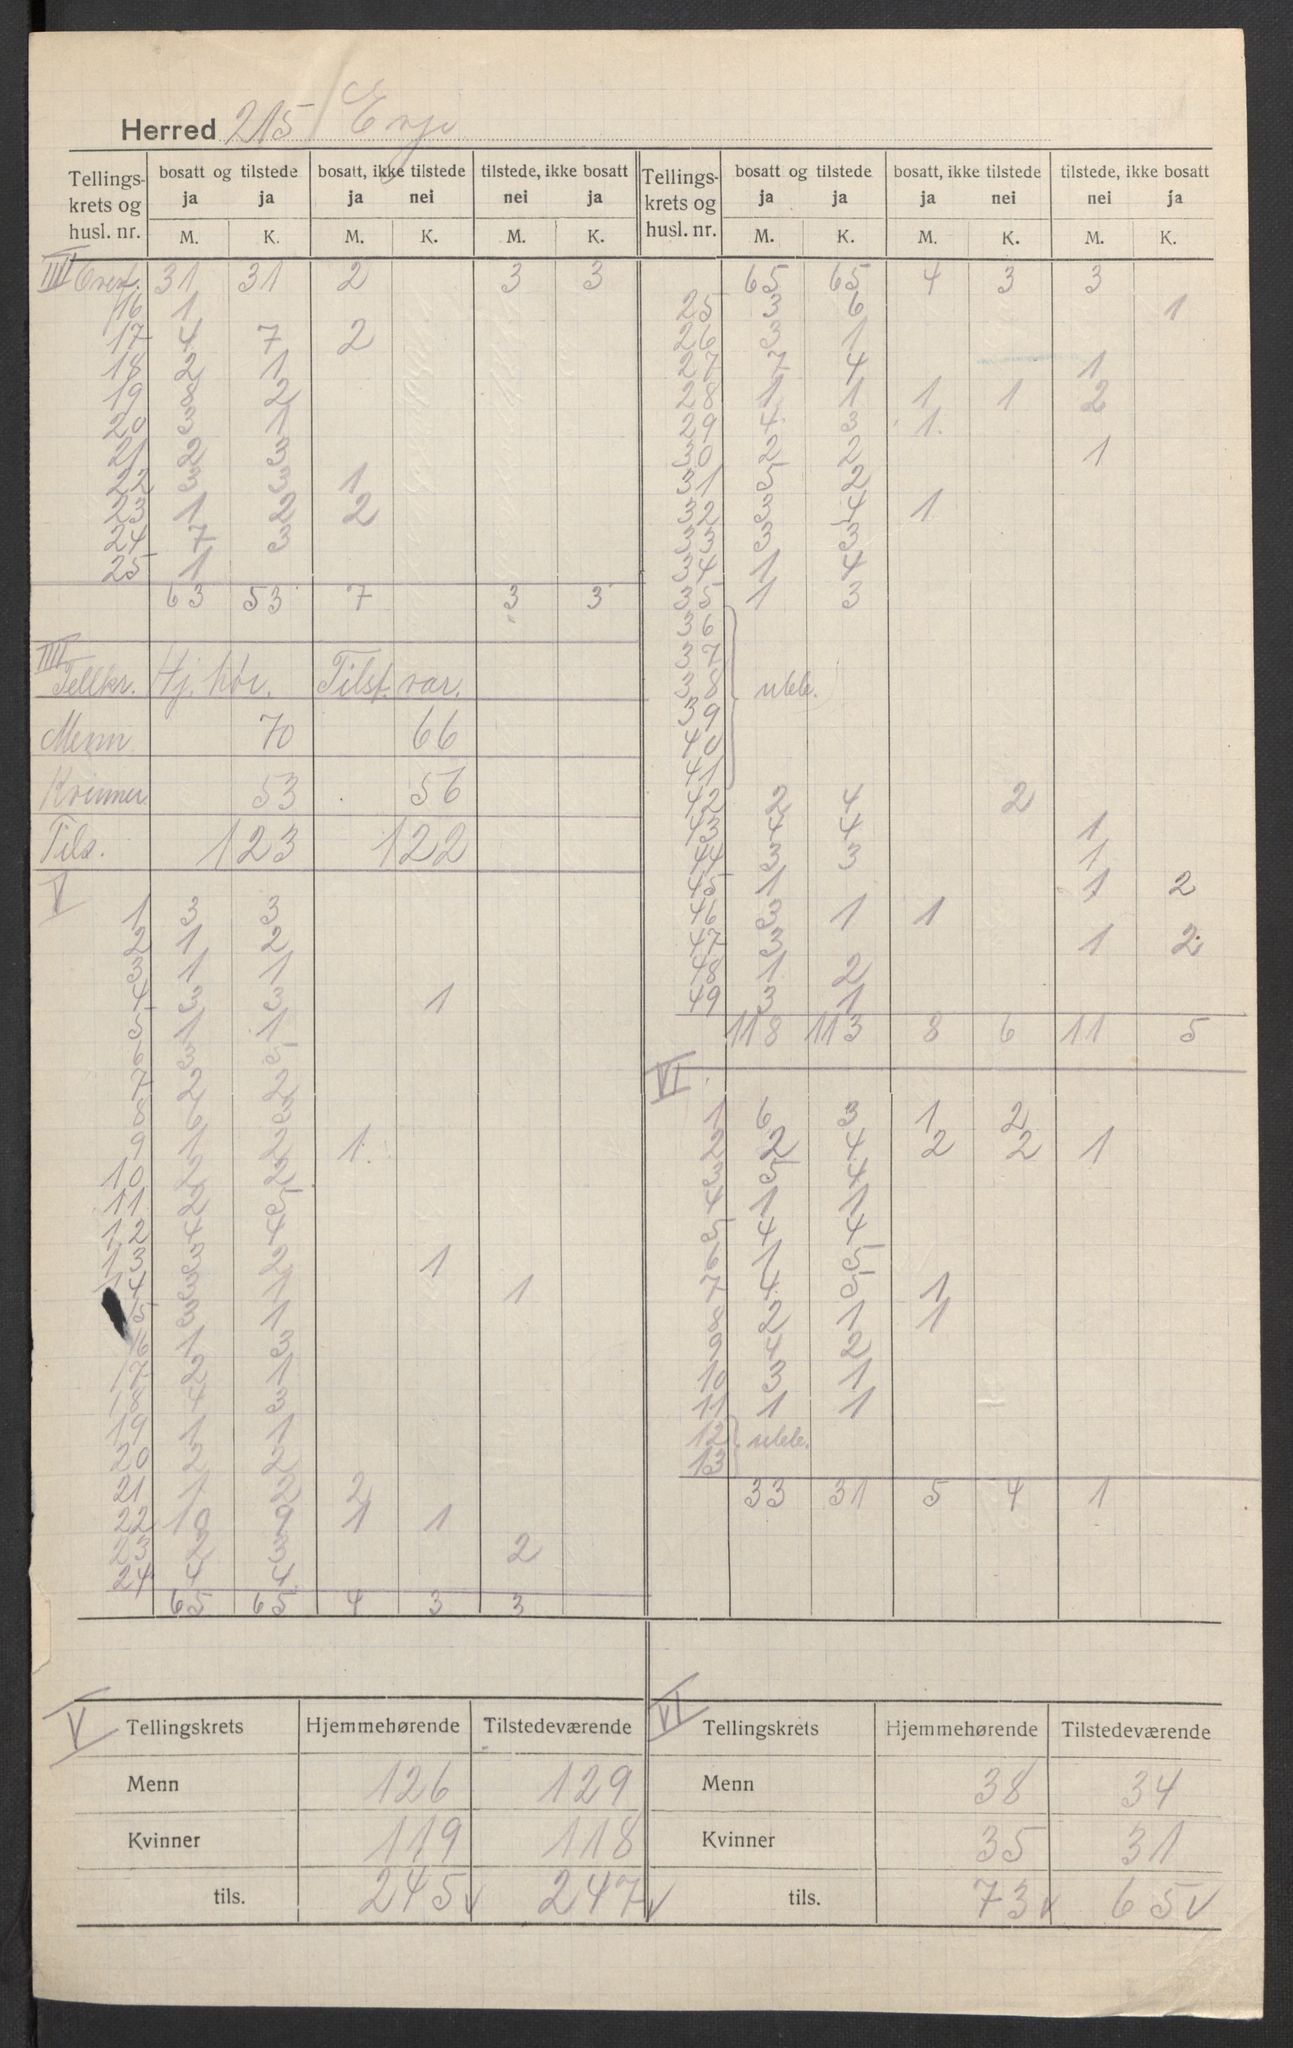 Herred 215 / Evje
Tellings- krets og husl. nr. | bosatt og tilstede ja ja M. K. | bosatt, ikke tilstede ja nei M. K. | tilstede, ikke bosatt nei ja M. K.
IIII Overf. 31 31 2 3 3
16 1
17 4 7 2
18 2 1
19 8 2
20 3 1
21 2 3
22 3 3 1
23 1 2 2
24 7 3
25 1
63 53 7 3 3
IIII
Tellkr. Hj. hør. Tilst. var.
Menn 70 66
Kvinner 53 56
Tils. 123 122
V
1 3 3
2 1 2
3 1 1
4 3 3 1
5 1 1
6 3 5
7 2 2
8 6 3
9 1 2 1
10 2 2
11 2 5
12 4 4
13 3 2 1
14 3 1 1
15 3 1
16 1 3
17 2 1
18 4 3
19 1 1
20 2 2
21 1 2 2
22 10 9 1 1
23 2 3 2
24 4 4
65 65 4 3 3
Tellings- krets og husl. nr. | bosatt og tilstede ja ja M. K. | bosatt, ikke tilstede ja nei M. K. | tilstede, ikke bosatt nei ja M. K.
65 65 4 3 3
25 3 6 1
26 3 1
27 7 4 1
28 1 1 1 1 2
29 4 3 1
30 2 2 1
31 5 2
32 3 4 1
33 3 3
34 1 4
35 1 3
36
37
38 ubb.
39
40
41
42 2 4 2
43 4 4 1
44 3 3 1
45 1 1 2
46 3 1 1
47 3 1 2
48 1 2
49 3 1
118 113 8 6 11 5
VI
1 6 3 1 2
2 2 4 2 2 1
3 5 4
4 1 1
5 4 4
6 1 5
7 4 5 1
8 2 1 1
9 4 2
10 3 1
11 1 1
12 ubb.
13
33 31 5 4 1
V Tellingskrets Hjemmehørende Tilstedeværende
Menn 126 129
Kvinner 119 118
tils. 245 v 247 v
VI Tellingskrets Hjemmehørende Tilstedeværende
Menn 38 34
Kvinner 35 31
tils. 73 v 65 v